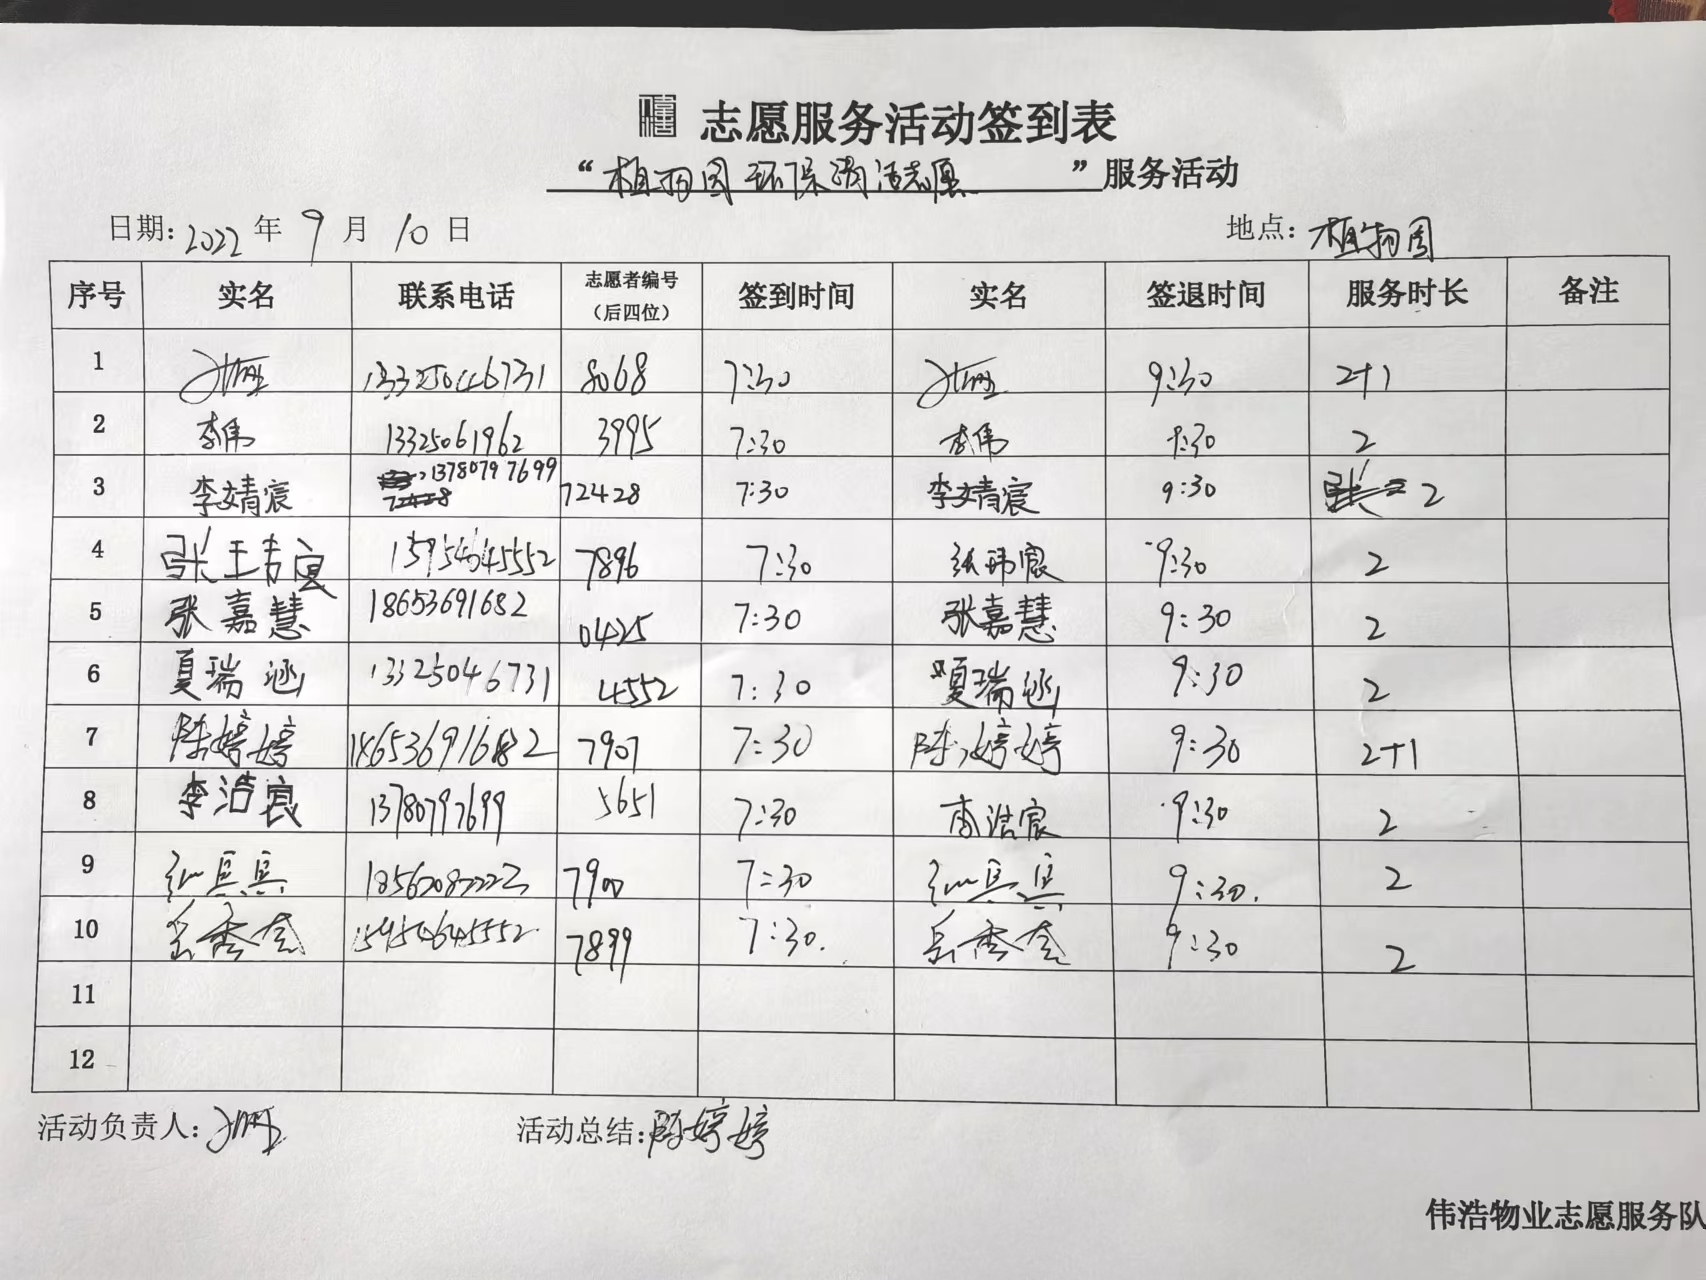 志愿服务活动签到表
“植物园环保清洁志愿”服务活动
日期: 2022 年 9 月 10 日 地点: 植物园
序号 实名 联系电话 志愿者编号（后四位） 签到时间 实名 签退时间 服务时长 备注
1 13325046731 8068 7:30 9:30 2+1
2 李伟 13325061962 3995 7:30 李伟 9:30 2
3 李婧宸 13780797699 72428 7:30 李婧宸 9:30 2
4 张玮宸 15954645552 7896 7:30 张玮宸 9:30 2
5 张嘉慧 18653691682 0425 7:30 张嘉慧 9:30 2
6 夏瑞涵 13325046731 4552 7:30 夏瑞涵 9:30 2
7 陈婷婷 18653691682 7907 7:30 陈婷婷 9:30 2+1
8 李浩宸 13780797699 5651 7:30 李浩宸 9:30 2
9 7900 7:30 9:30. 2
10 岳秀 15954645552 7899 7:30. 岳秀 9:30 2
11
12
活动负责人: 活动总结: 陈婷婷
伟浩物业志愿服务队